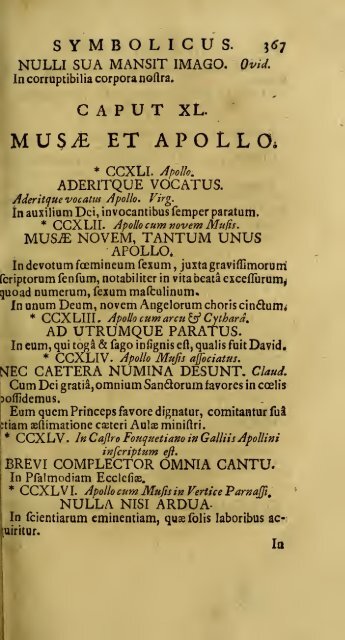 SYMBOLICUS. 367
NULLI SUA MANSIT IMAGO. Ovid.
In corruptibilia corpora noſtra.
CAPUT XL.
MUSÆ ET APOLLO.
* CCXLI. Apollo.
ADERITQUE VOCATUS.
Aderitque vocatus Apollo. Virg.
In auxilium Dei, invocantibus ſemper paratum.
* CCXLII. Apollo cum novem Muſis.
MUSÆ NOVEM, TANTUM UNUS
APOLLO.
In devotum fœmineum ſexum, juxta graviſſimorum
ſcriptorum ſenſum, notabiliter in vita beatâ exceſſurum,
quoad numerum, ſexum maſculinum.
In unum Deum, novem Angelorum choris cinctum.
* CCXLIII. Apollo cum arcu & Cytharâ.
AD UTRUMQUE PARATUS.
In eum, qui togâ & ſago inſignis eſt, qualis fuit David.
* CCXLIV. Apollo Muſis aſſociatus.
NEC CAETERA NUMINA DESUNT. Claud.
Cum Dei gratiâ, omnium Sanctorum favores in cœlis
poſſidemus.
Eum quem Princeps favore dignatur, comitantur ſuâ
etiam æſtimatione cæteri Aulæ miniſtri.
* CCXLV. In Caſtro Fouquetiano in Galliis Apollini
inſcriptum eſt.
BREVI COMPLECTOR OMNIA CANTU.
In Pſalmodiam Eccleſiæ.
* CCXLVI. Apollo cum Muſis in Vertice Parnaſſi.
NULLA NISI ARDUA.
In ſcientiarum eminentiam, quæ ſolis laboribus ac-
quiritur.
In